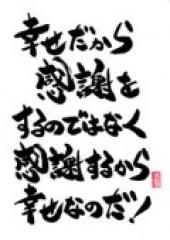 幸せだから
感謝を
するのではなく
感謝するから
幸せなのだ!